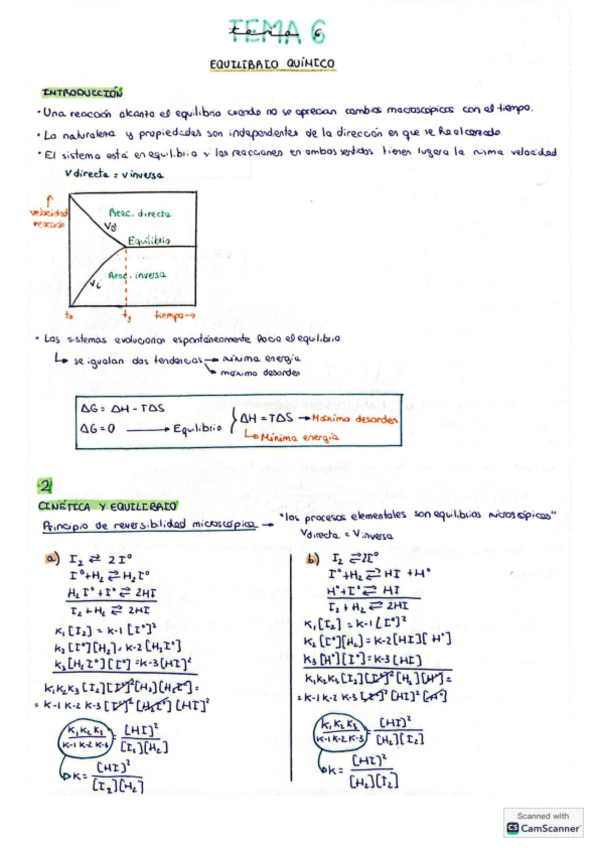 TEMA 6
tema 6
EQUILIBRIO QUÍMICO
INTRODUCCIÓN
· Una reacción alcanza el equilibrio cuando no se aprecian cambios macroscópicos con el tiempo.
· La naturaleza y propiedades son independientes de la dirección en que se
· El sistema está en equilibrio y las reacciones en ambos sentidos tienen lugar a la misma velocidad
V directa = V inversa
velocidad
reacción
Reac. directa
Vd
Equilibrio
Reac. inversa
Vi
t₀
tiempo→
· Los sistemas evolucionan espontáneamente hacia el equilibrio
↳ se igualan dos tendencias → mínima energía
↘ máximo desorden
ΔG = ΔH - TΔS
ΔG = 0 ⟶ Equilibrio } ΔH = TΔS → Máximo desorden
↳ Mínima energía
2
CINÉTICA Y EQUILIBRIO
Principio de reversibilidad microscópica → "los procesos elementales son equilibrios microscópicos"
Vdirecta = Vinversa
a) I₂ ⇄ 2I°
I° + H₂ ⇄ H₂I°
H₂I° + I° ⇄ 2HI
I₂ + H₂ ⇄ 2HI
K₁[I₂] = K-1 [I°]²
K₂ [I°][H₂] = K-2 [H₂I°]
K₃ [H₂I°][I°] = K-3 [HI]²
K₁K₂K₃ [I₂][I°]² [H₂][H₂I°] =
= K-1 K-2 K-3 [I°]² [H₂I°] [HI]²
K₁K₂K₃ / K-1 K-2 K-3 = [HI]² / [I₂][H₂]
K = [HI]² / [I₂][H₂]
b) I₂ ⇄ 2I°
I° + H₂ ⇄ HI + H°
H° + I° ⇄ HI
I₂ + H₂ ⇄ 2HI
K₁[I₂] = K-1 [I°]²
K₂ [I°][H₂] = K-2 [HI][H°]
K₃ [H°][I°] = K-3 [HI]
K₁K₂K₃ [I₂][I°]² [H₂][H°] =
= K-1 K-2 K-3 [I°]² [HI]² [H°]
K₁K₂K₃ / K-1 K-2 K-3 = [HI]² / [H₂][I₂]
K = [HI]² / [H₂][I₂]
Scanned with
CS CamScanner